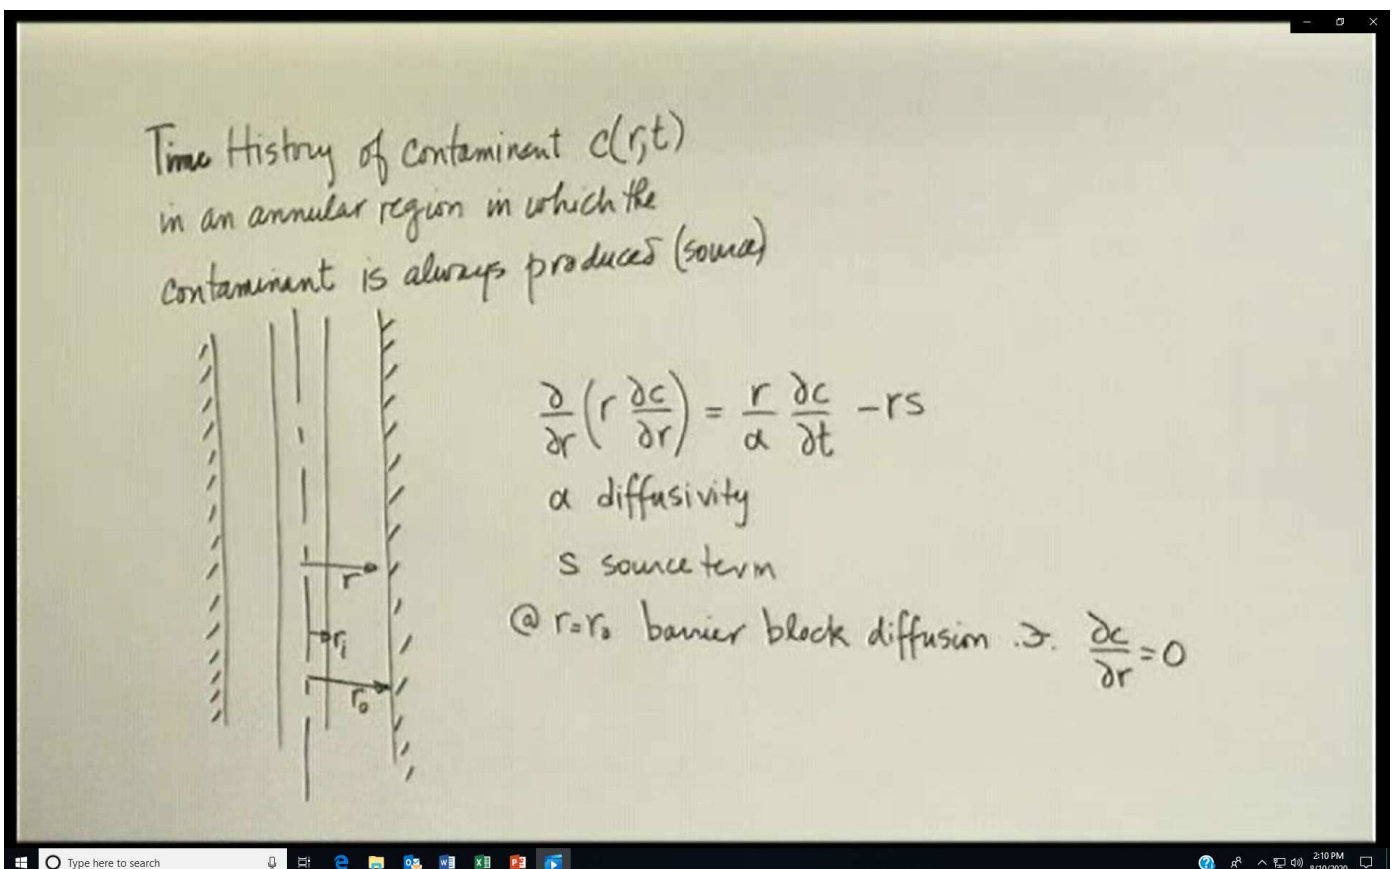 Time History of contaminent c(r,t)
in an annular region in which the
contaminant is always produced (source)
∂/∂r (r ∂c/∂r) = r/α ∂c/∂t - rs
α diffusivity
s source term
@ r=r₀ barrier block diffusion .⋅. ∂c/∂r = 0
r
rᵢ
r₀
Type here to search
2:10 PM
8/10/2020